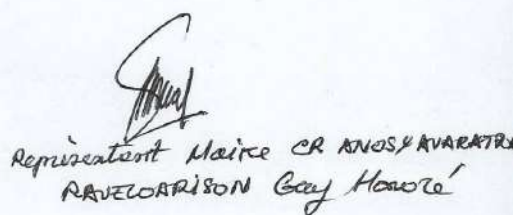 Représentant Maire CR ANOSY AVARATRA
RAVELOARISON Guy Honoré